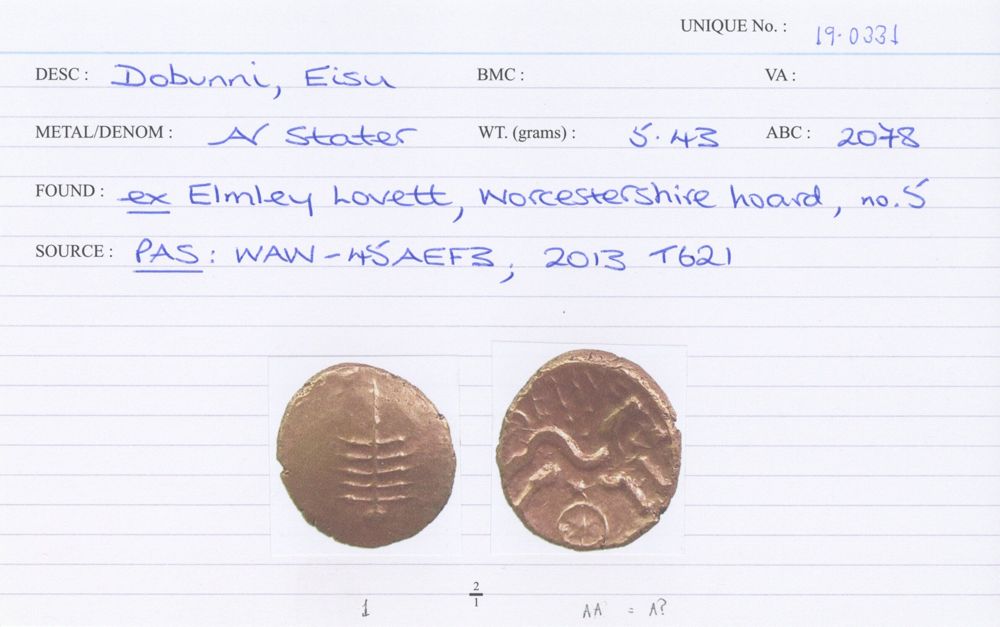 UNIQUE No. : 19.0331
DESC : Dobunni, Eisu BMC : VA :
METAL/DENOM : AV Stater WT. (grams) : 5.43 ABC : 2078
FOUND : ex Elmley Lovett, Worcestershire hoard, no.5
SOURCE : PAS: WAW-45AEF3, 2013 T621
2
1
1 AA = A?